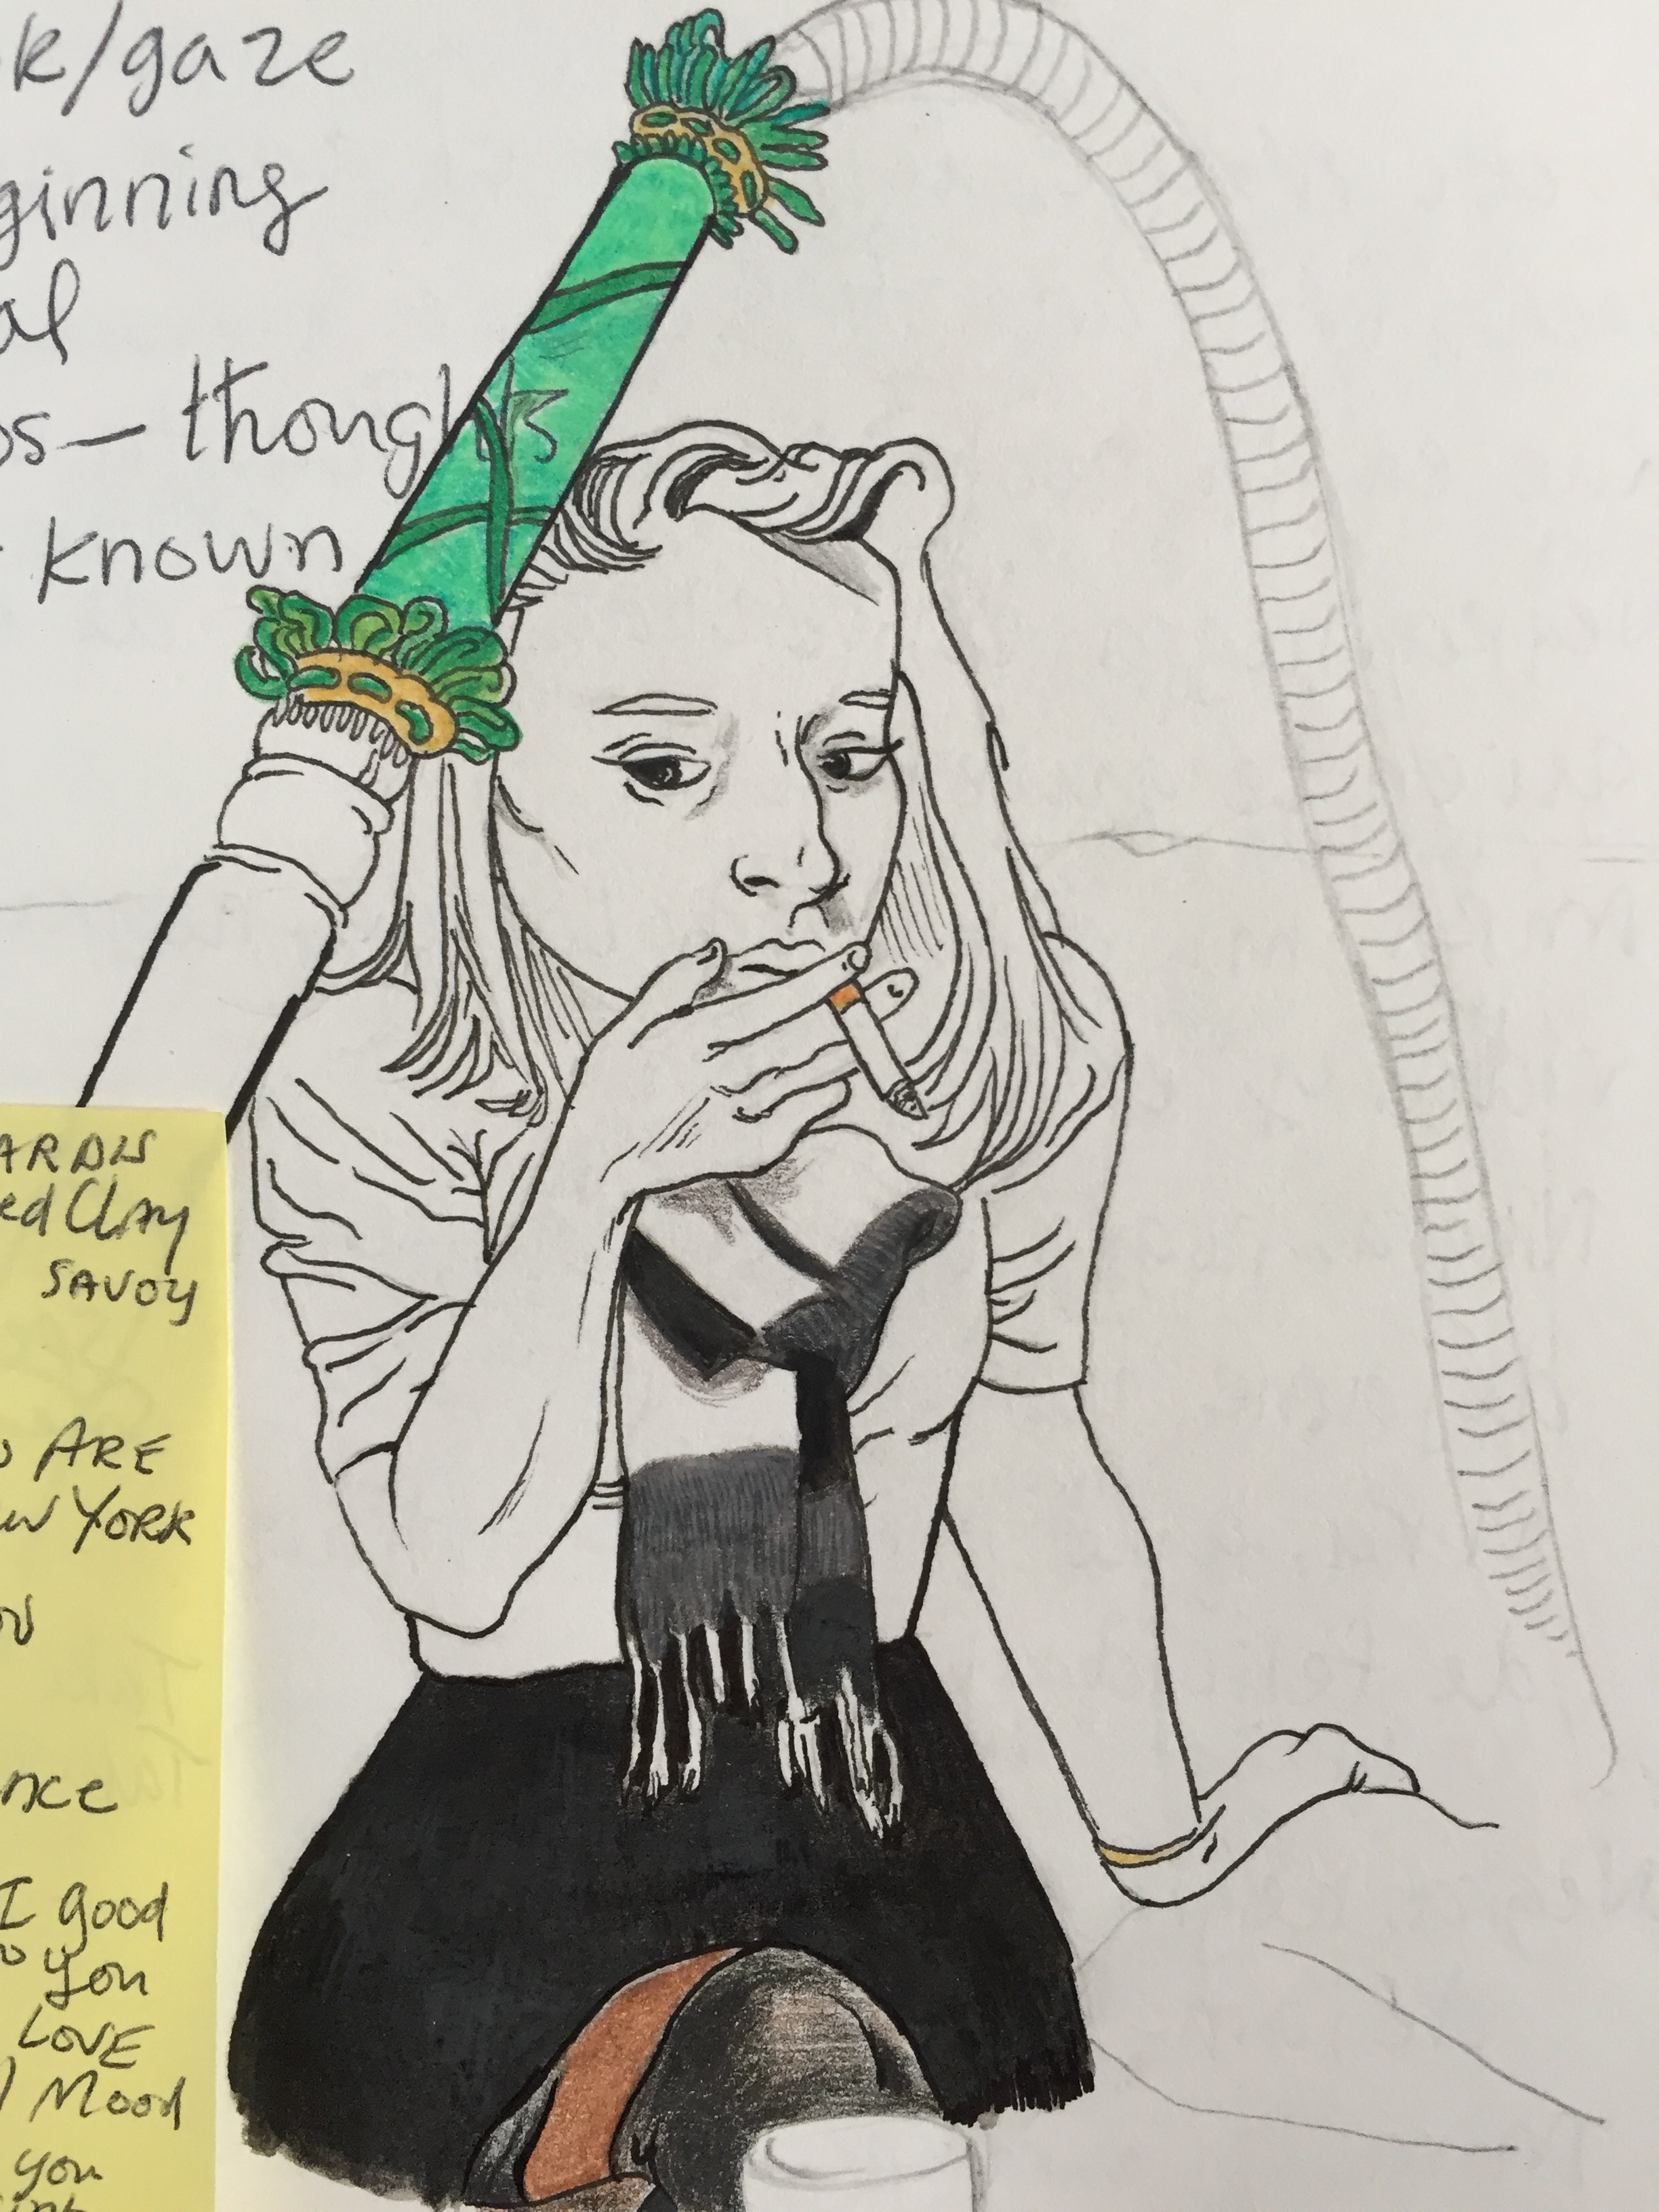 k/gaze
ginning
al
os— thoughts
known
ARDIS
ed Clay
SAVOY
ARE
ew YORK
nce
I good
o you
LOVE
Mood
you